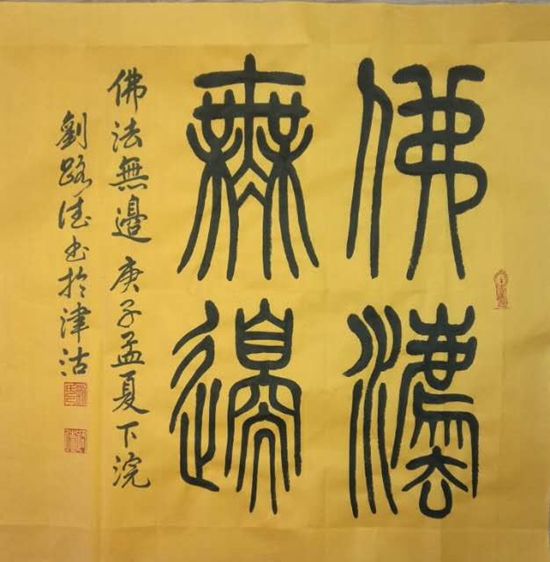 佛灋
無邊
佛法無邊 庚子孟夏下浣
劉路德书於津沽